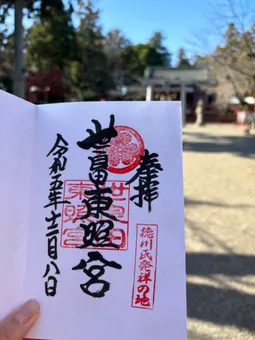 奉拝
徳川氏発祥の地
世良田東照宮
世良田東照宮
令和五年十二月八日